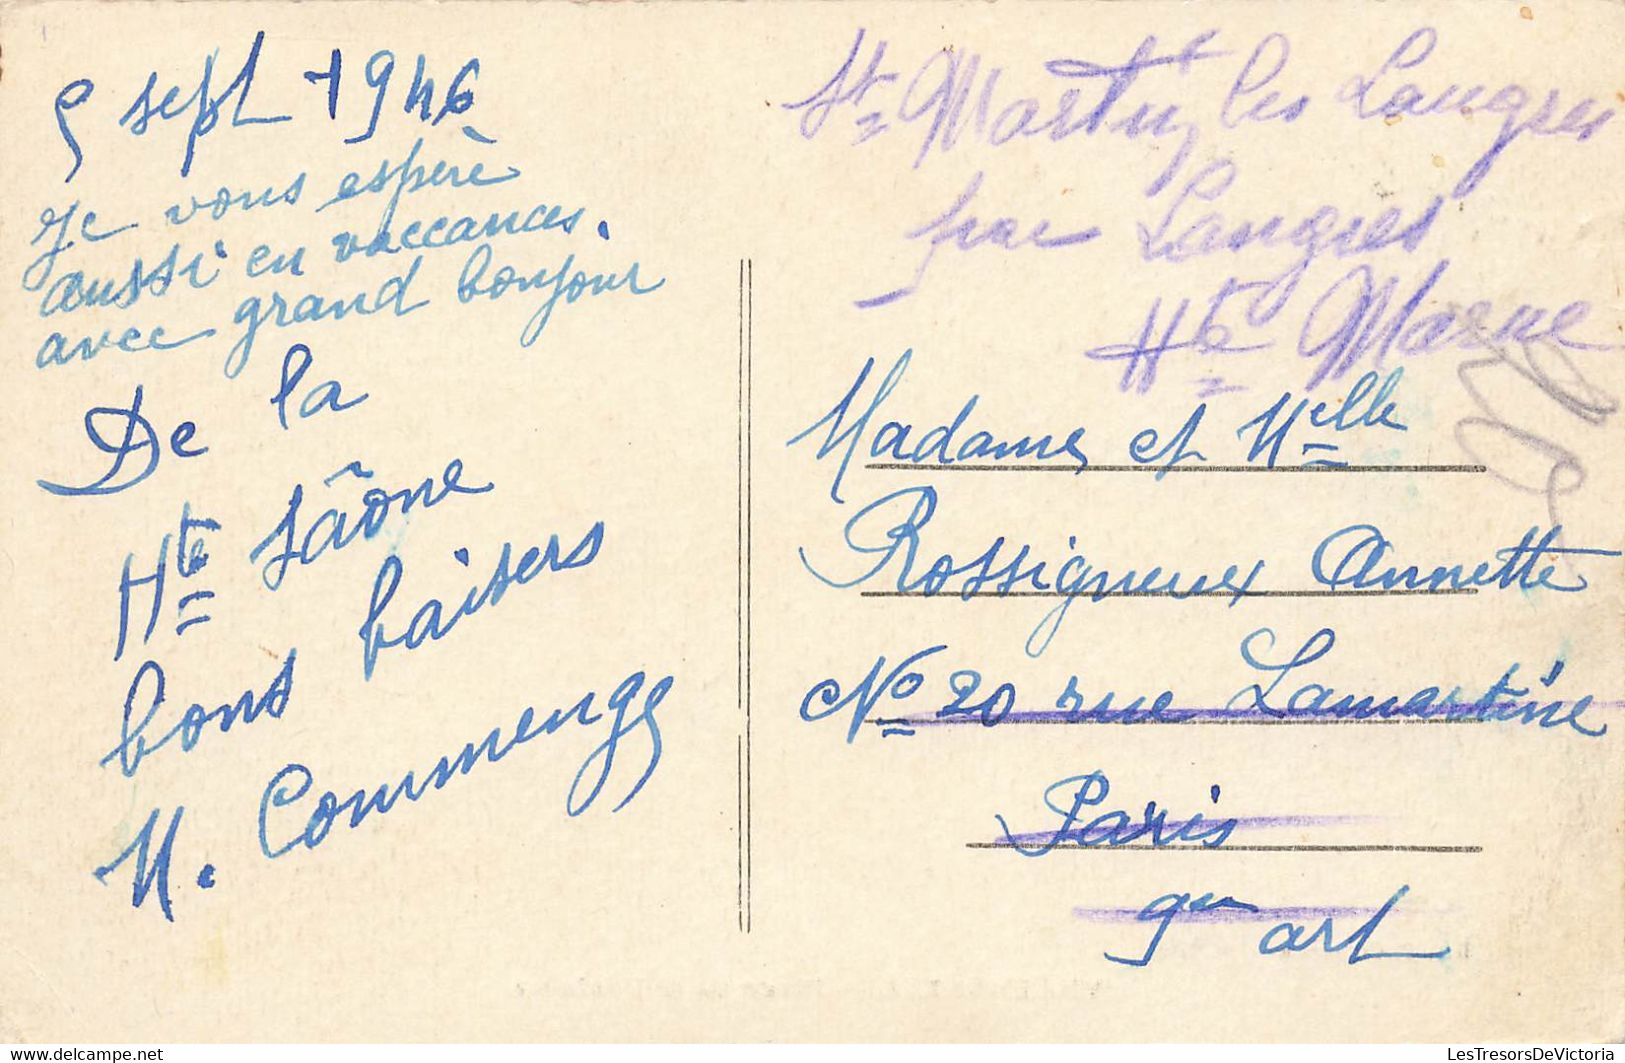 5 sept 1946
Je vous espère
aussi en vaccances.
avec grand bonjour
De la
Hte Sâone
bons baisers
M. Commenge
St Martin les Langres
par Langres
Hte Marne
Madame et Melle
Rossigneux Annette
No 20 rue Lamartine
Paris
9em art
© www.delcampe.net
LesTresorsDeVictoria